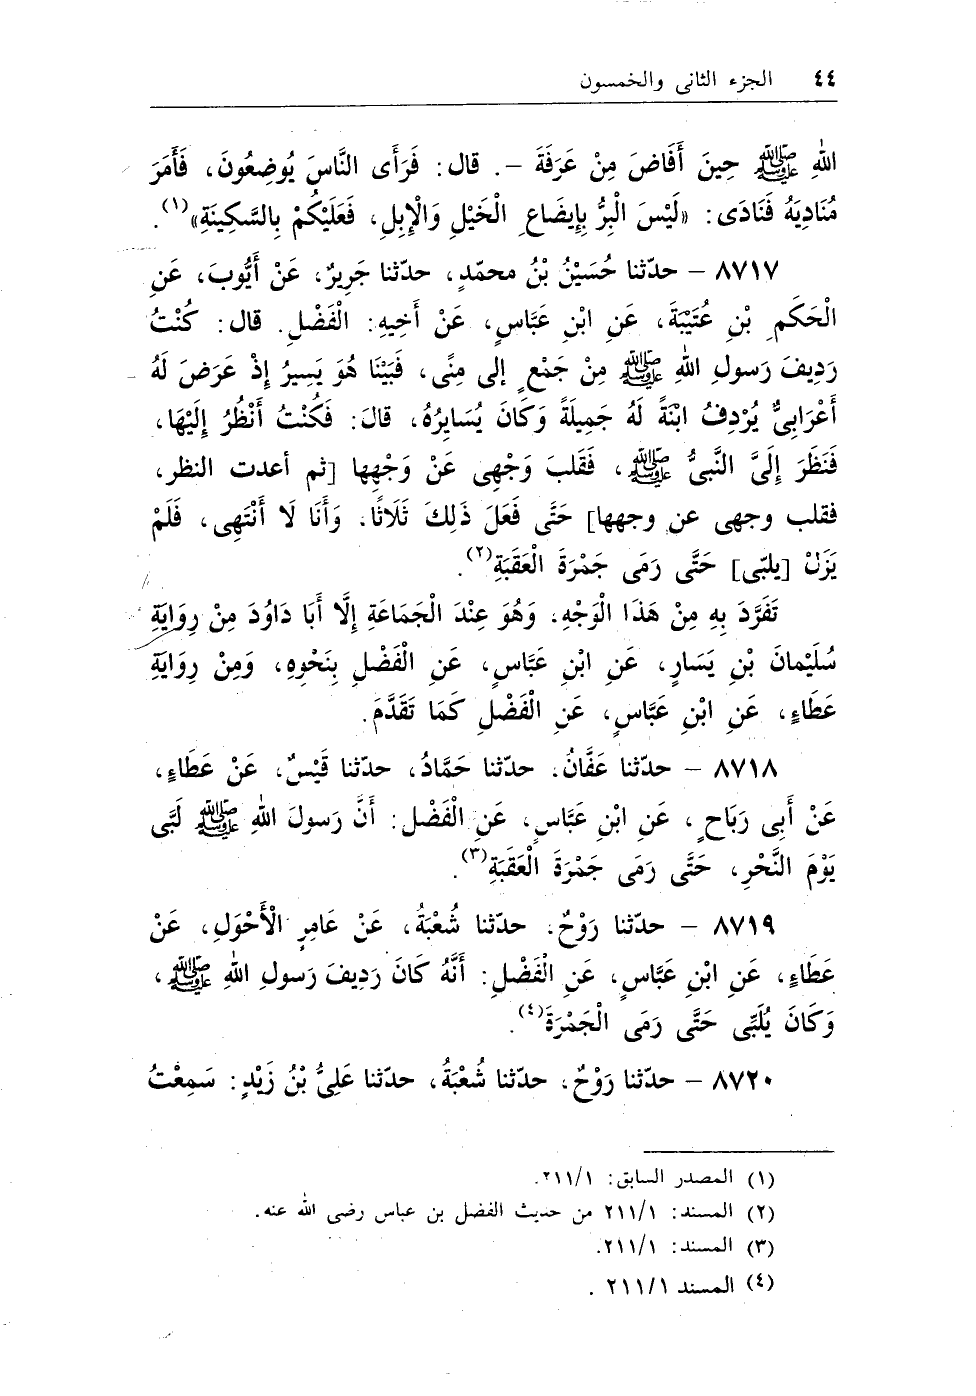 ٤٤ الجزء الثانى والخمسون
اللهِ ﷺ حِينَ أَفَاضَ مِنْ عَرَفَةَ –. قال: فَرَأَى النَّاسَ يُوضِعُونَ، فَأَمَرَ
مُنَادِيَهُ فَنَادَى: «لَيْسَ الْبِرُّ بِإِيضَاعِ الْخَيْلِ وَالْإِبِلِ، فَعَلَيْكُمْ بِالسَّكِينَةِ»(١).
٨٧١٧ – حدّثنا حُسَيْنُ بْنُ محمّدٍ، حدّثنا جَرِيرٌ، عَنْ أَيُّوبَ، عَنِ
الْحَكَمِ بْنِ عُتَيْبَةَ، عَنِ ابْنِ عَبَّاسٍ، عَنْ أَخِيهِ: الْفَضْلِ. قال: كُنْتُ
رَدِيفَ رَسولِ اللهِ ﷺ مِنْ جَمْعٍ إلى مِنًى، فَبَيْنَا هُوَ يَسِيرُ إِذْ عَرَضَ لَهُ
أَعْرَابِىٌّ يُرْدِفُ ابْنَةً لَهُ جَمِيلَةً وَكَانَ يُسَايِرُهُ، قالَ: فَكُنْتُ أَنْظُرُ إِلَيْهَا،
فَنَظَرَ إِلَىَّ النَّبىُّ ﷺ، فَقَلبَ وَجْهِى عَنْ وَجْهِها [ثم أعدت النظر،
فقلب وجهى عن وجهها] حَتَّى فَعَلَ ذَلِكَ ثَلَاثًا، وَأَنَا لَا أَنْتَهِى، فَلَمْ
يَزَلْ [يلبّى] حَتَّى رَمَى جَمْرَةَ الْعَقَبَةِ(٢).
تَفَرَّدَ بِهِ مِنْ هَذَا الْوَجْهِ، وَهُوَ عِنْدَ الْجَمَاعَةِ إِلَّا أَبَا دَاوُدَ مِنْ رِوَايَةِ
سُلَيْمانَ بْنِ يَسَارٍ، عَنِ ابْنِ عَبَّاسٍ، عَنِ الْفَضْلِ بِنَحْوِهِ، وَمِنْ رِوَايَةِ
عَطَاءٍ، عَنِ ابْنِ عَبَّاسٍ، عَنِ الْفَضْلِ كَمَا تَقَدَّمَ.
٨٧١٨ – حدّثنا عَفَّانُ، حدّثنا حَمَّادُ، حدّثنا قَيْسٌ، عَنْ عَطَاءٍ،
عَنْ أَبِى رَبَاحٍ، عَنِ ابْنِ عَبَّاسٍ، عَنِ الْفَضْلِ: أَنَّ رَسولَ اللهِ ﷺ لَبَّى
يَوْمَ النَّحْرِ، حَتَّى رَمَى جَمْرَةَ الْعَقَبَةِ(٣).
٨٧١٩ – حدّثنا رَوْحٌ، حدّثنا شُعْبَةُ، عَنْ عَامِرٍ الْأَحْوَلِ، عَنْ
عَطَاءٍ، عَنِ ابْنِ عَبَّاسٍ، عَنِ الْفَضْلِ: أَنَّهُ كَانَ رَدِيفَ رَسولِ اللهِ ﷺ،
وَكَانَ يُلَبِّى حَتَّى رَمَى الْجَمْرَةَ(٤).
٨٧٢٠ – حدّثنا رَوْحٌ، حدّثنا شُعْبَةُ، حدّثنا عَلِىُّ بْنُ زَيْدٍ: سَمِعْتُ
(١) المصدر السابق: ٢١١/١.
(٢) المسند: ٢١١/١ من حديث الفضل بن عباس رضى الله عنه.
(٣) المسند: ٢١١/١.
(٤) المسند ٢١١/١ .